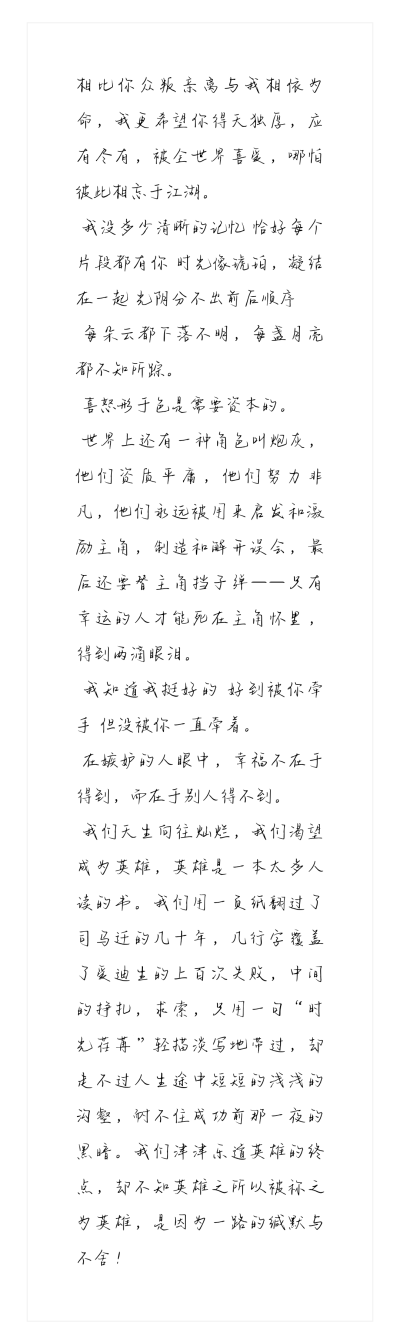 相比你众叛亲离与我相依为
命，我更希望你得天独厚，应
有尽有，被全世界喜爱，哪怕
彼此相忘于江湖。
我没多少清晰的记忆 恰好每个
片段都有你 时光像琥珀，凝结
在一起 光阴分不出前后顺序
每朵云都下落不明，每盏月亮
都不知所踪。
喜怒形于色是需要资本的。
世界上还有一种角色叫炮灰，
他们资质平庸，他们努力非
凡，他们永远被用来启发和激
励主角，制造和解开误会，最
后还要替主角挡子弹——只有
幸运的人才能死在主角怀里，
得到两滴眼泪。
我知道我挺好的 好到被你牵
手 但没被你一直牵着。
在嫉妒的人眼中，幸福不在于
得到，而在于别人得不到。
我们天生向往灿烂，我们渴望
成为英雄，英雄是一本太多人
读的书。我们用一页纸翻过了
司马迁的几十年，几行字覆盖
了爱迪生的上百次失败，中间
的挣扎，求索，只用一句“时
光荏苒”轻描淡写地带过，却
走不过人生途中短短的浅浅的
沟壑，耐不住成功前那一夜的
黑暗。我们津津乐道英雄的终
点，却不知英雄之所以被称之
为英雄，是因为一路的缄默与
不舍！